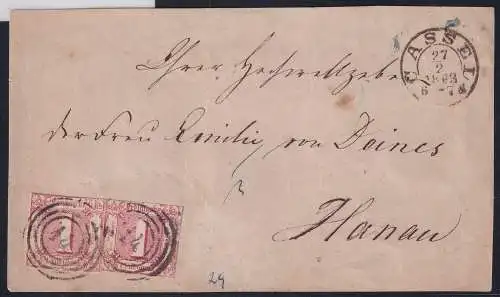 CASSEL
27
2
1863
6 - 7
Ihrer Hochwellgebo
der Frau Emilie von Deines
Hanau
1 1
29